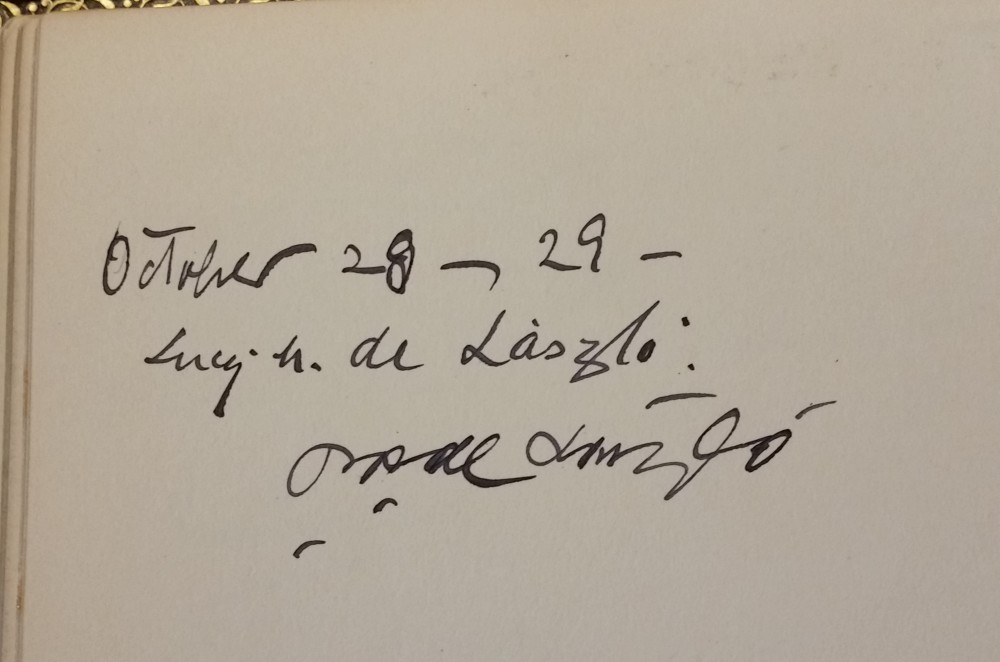 October 28 –, 29 –
Lucy. M. de László.
de László